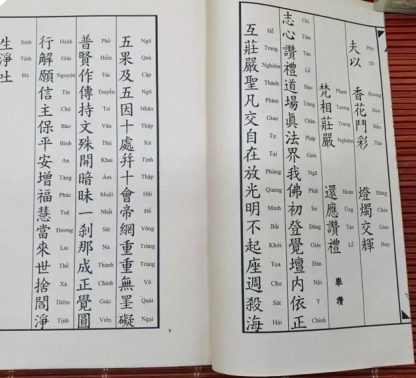 夫以 香花鬥彩 燈燭交輝
Phù Dĩ Hương Hoa Đăng Chúc Giao Huy
梵相莊嚴 還應讚禮 舉讚
Phạm Tướng Trang Nghiêm Hoàn Ưng Tán Lễ
志心讚禮道場眞法界我佛初登覺壇內依正
Chí Tâm Tán Lễ Đạo Tràng Chân Pháp Giới Ngã Phật Sơ Đăng Giác Đàn Nội Y Chính
互莊嚴聖凡交自在放光明不起座週殺海
Hỗ Trang Nghiêm Thánh Phàm Giao Tự Tại Phóng Quang Minh Bất Khởi Tọa Chu Sát Hải
五果及五因十處幷十會帝網重重無罣礙
Ngũ Quả Cập Ngũ Nhân Thập Xứ Tịnh Thập Hội Đế Võng Trùng Trùng Vô Quái Ngại
普賢作傳持文殊開暗昧一剎那成正覺圓
Phổ Hiền Tác Truyền Trì Văn Thù Khai Ám Muội Nhất Sát Na Thành Chính Giác Viên
行解願信主保平安增福慧當來世捨閻淨
Hành Giải Nguyện Tín Chủ Bảo Bình An Tăng Phúc Tuệ Đương Lai Thế Xả Diêm Tịnh
生淨吐
Sinh Tịnh Đổ